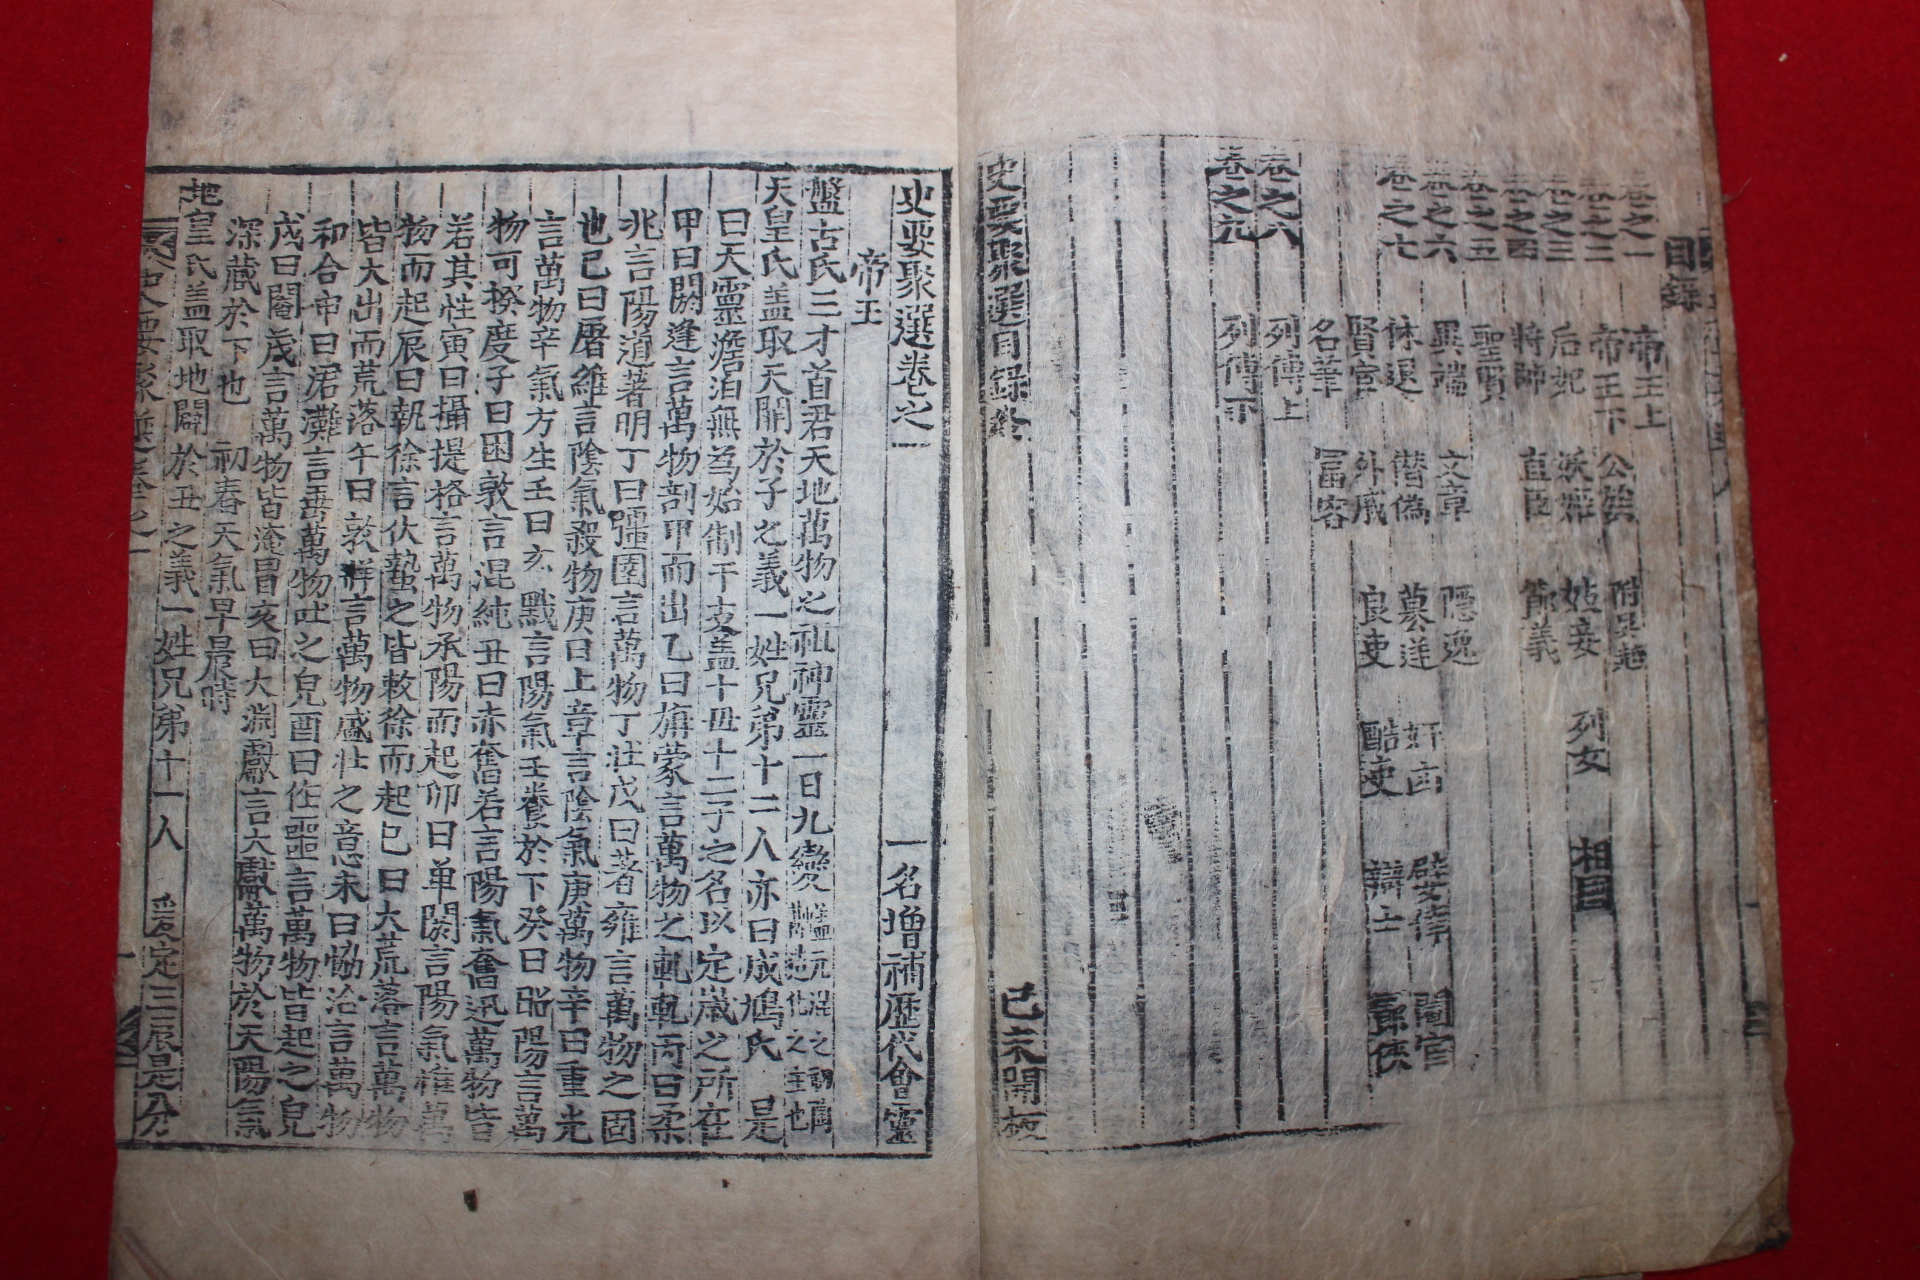 目錄
卷之一 帝王上
卷之二 帝王下 公族 附吳越
卷之三 后妃 妖姬 妓妾 列女 相国
卷之四 將帥 直臣 節義
卷之五 聖賢
卷之六 異端 文章 隱逸
卷之七 休退 僭偽 篡逆 奸凶 嬖倖 閹宦
賢宦 外戚 良吏 酷吏 辯士 豪俠
名筆 富客
卷之八 列傳上
卷之九 列傳下
史要聚選目錄終 己未開板
史要聚選卷之一 一名增補歷代會靈
帝王
盤古氏三才首君天地萬物之祖神靈一日九變 蓋元混之初陶
融造化之主也
天皇氏蓋取天開於子之義一姓兄弟十二人亦曰成鳩氏 是
曰天靈澹泊無爲始制干支蓋十母十二子之名以定歲之所在
甲曰閼逢言萬物剖甲而出乙曰旃蒙言萬物之軋軋丙曰柔
兆言陽道著明丁曰彊圉言萬物丁壯戊曰著雍言萬物之固
也己曰屠維言陰氣殺物庚曰上章言陰氣庚萬物辛曰重光
言萬物辛氣方生壬曰玄黓言陽氣壬養於下癸曰昭陽言萬
物可揆度子曰困敦言混純丑曰赤奮若言陽氣奮迅萬物皆
若其性寅曰攝提格言萬物承陽而起卯曰單閼言陽氣推萬
物而起辰曰執徐言伏蟄之皆敕徐而起巳曰大荒落言萬物
皆大出而荒落午曰敦牂言萬物盛壯之意未曰恊洽言萬物
和合申曰涒灘言吾萬物吐之皃酉曰作噩言萬物皆起之皃
戌曰閹茂言萬物皆淹冒亥曰大淵獻言大獻萬物於天陽氣
深藏於下也 初春天氣早晨時
地皇氏盖取地闢於丑之義一姓兄弟十一人 爰定三辰是分
史要聚選卷之一 一